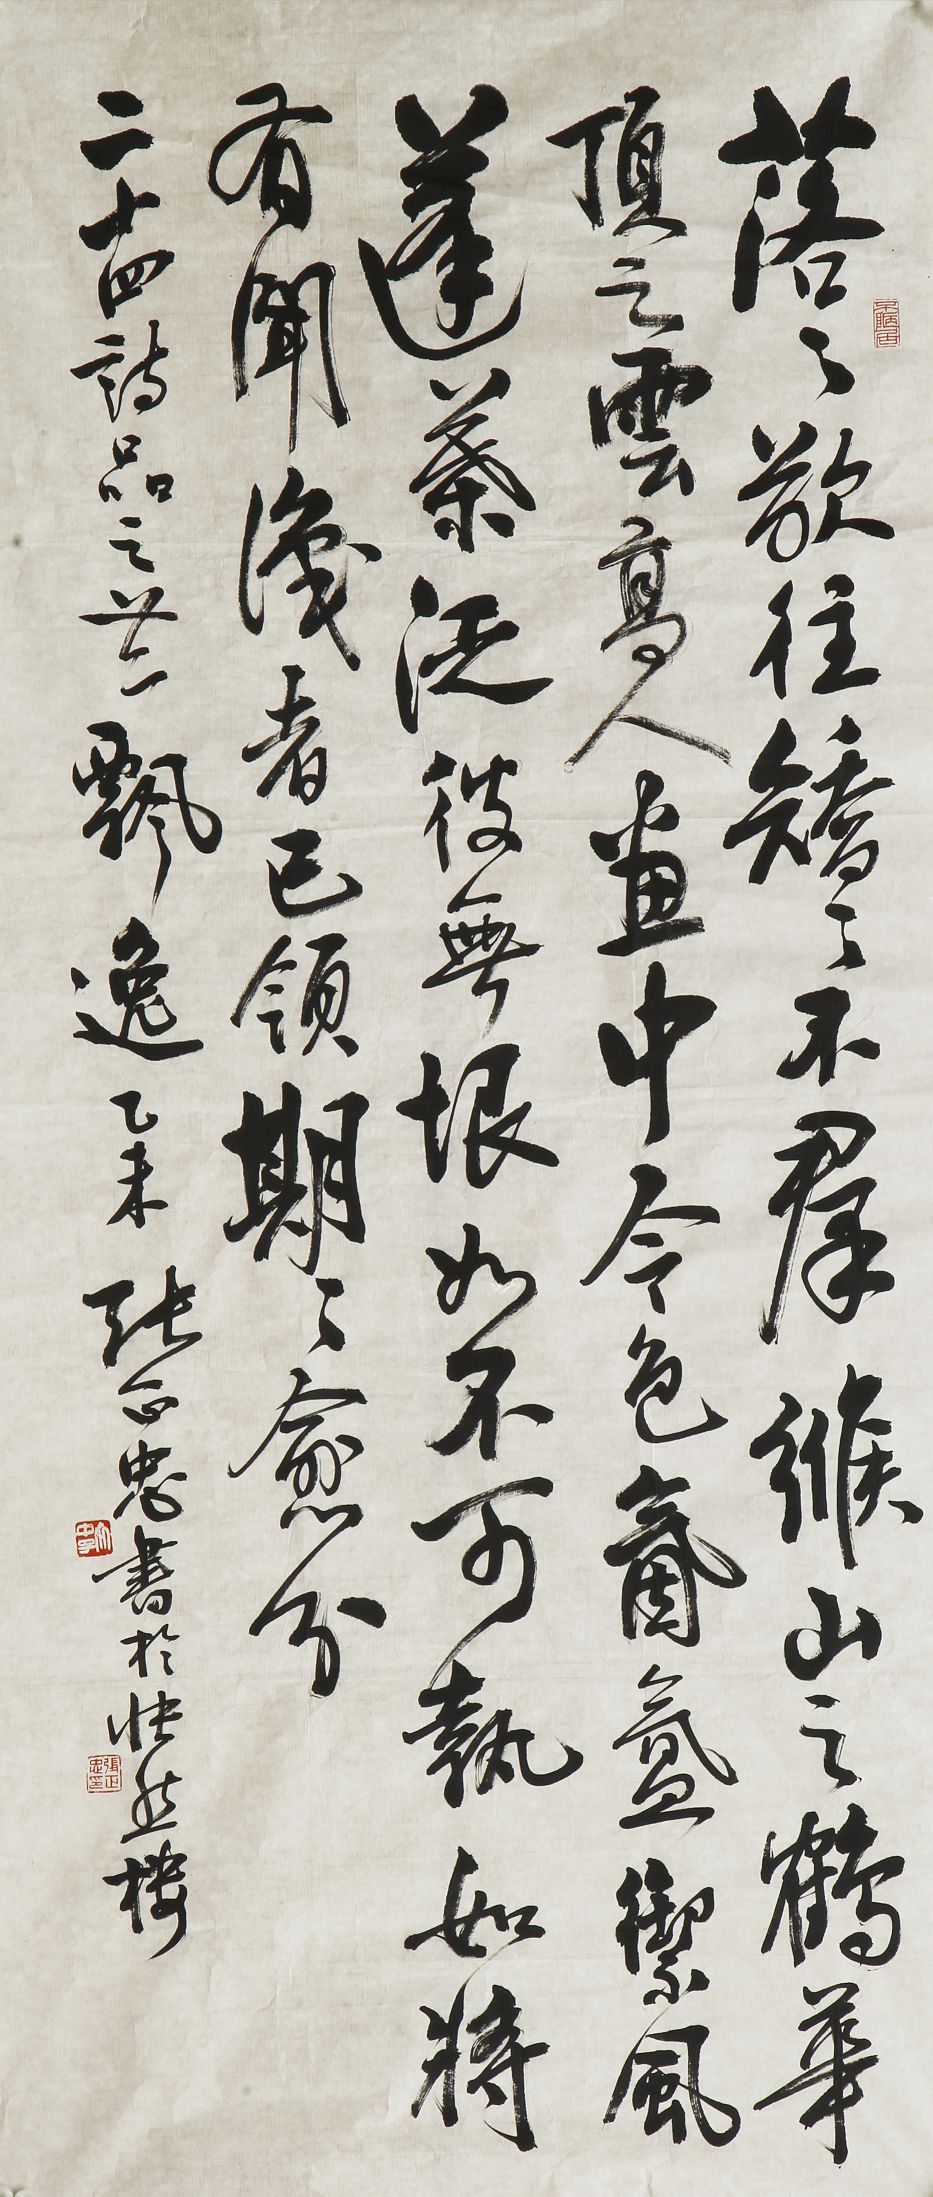 落々欲往矯々不群緱山之鶴華
頂之雲高人畫中令色氤氳禦風
蓬葉泛彼無垠如不可執如將
有聞識者已領期々愈分
二十四詩品之廿二飄逸乙未張正忠書於快然樓
張正忠印